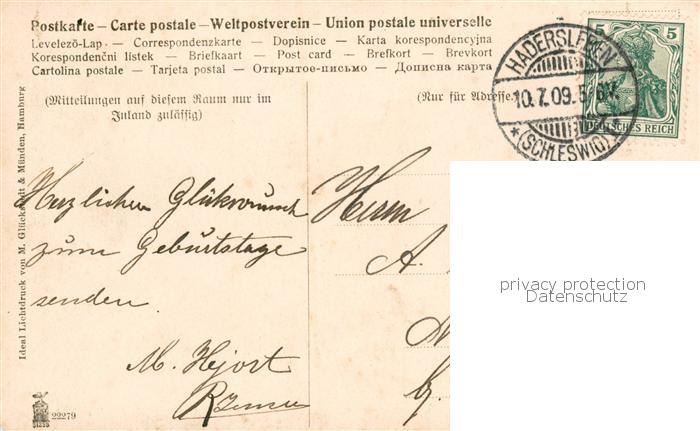 Postkarte — Carte postale — Weltpostverein — Union postale universelle
Levelező-Lap — Correspondenzkarte — Dopisnice — Karta korespondencyjna
Korespondenční listek — Briefkaart — Post card — Brefkort — Brevkort
Cartolina postale — Tarjeta postal — Открытое-письмо — Дописна карта
(Mitteilungen auf diesem Raum nur im
Inland zulässig)
(Nur für Adresse.
HADERSLEBEN
10.7.09.5
* (SCHLESWIG)
5
DEUTSCHES REICH
Ideal Lichtdruck von M. Glückstadt & Münden, Hamburg
Herzlichen Glükwunsch
zum Geburtstage
senden.
M. Hjort
Herrn
A.
privacy protection
Datenschutz
22279